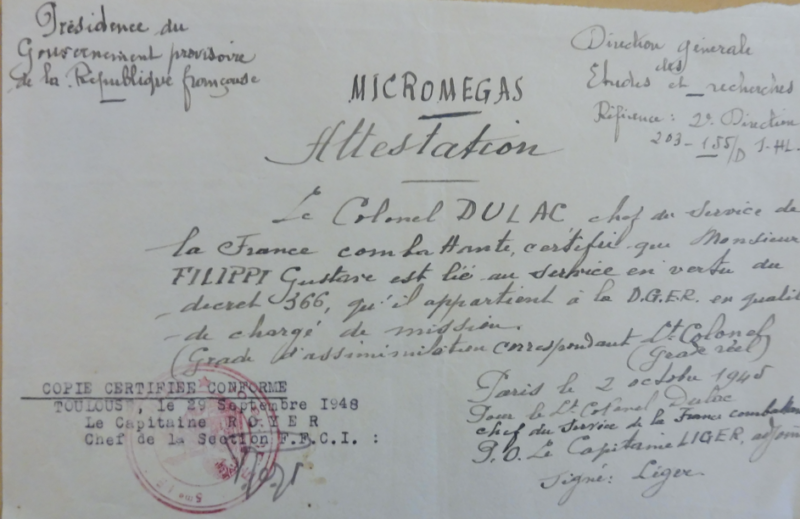 Présidence du
Gouvernement provisoire
de la République française
Direction générale
des
Etudes et recherches
Référence : 2e Direction
MICROMEGAS
Attestation
Le Colonel DULAC chef du Service de
la France combattante, certifie que Monsieur
FILIPPI Gustave est lié au service en vertu du
decret 366, qu'il appartient à la D.G.E.R. en qualit
de chargé de mission.
(Grade d'assimimilation correspondant Lt Colonel
(Grade réel)
Paris le 2 octobre 1945
Pour le Lt Colonel Dulac
chef du Service de la France combattan
P.O. Le Capitaine LIGER, adjoin
Signé: Liger.
COPIE CERTIFIEE CONFORME
TOULOUSE, le 29 Septembre 1948
Le Capitaine R O Y E R
Chef de la Section F.F.C.I. :